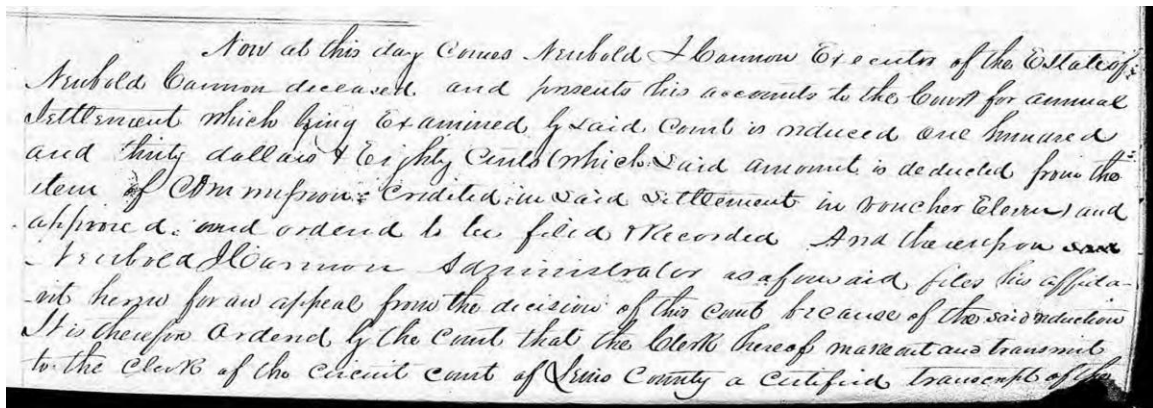 Now at this day Comes Neubold I Cannon Executor of the Estate of
Neubold Cannon deceased and presents his accounts to the Court for annual
Settlement which being Examined by said Court is reduced one hundred
and thirty dollars & Eighty Cents (which said amount is deducted from the
item of Commission Credited in said Settlement in voucher Eleven) and
approved and ordered to be filed & Recorded And thereupon
Neubold I Cannon Administrator as aforesaid files his affida-
vit herein for an appeal from the decision of this Court because of the said reduction
It is therefore Ordered by the Court that the Clerk thereof make out and transmit
to the Clerk of the Circuit Court of Lewis County a Certified transcript of the